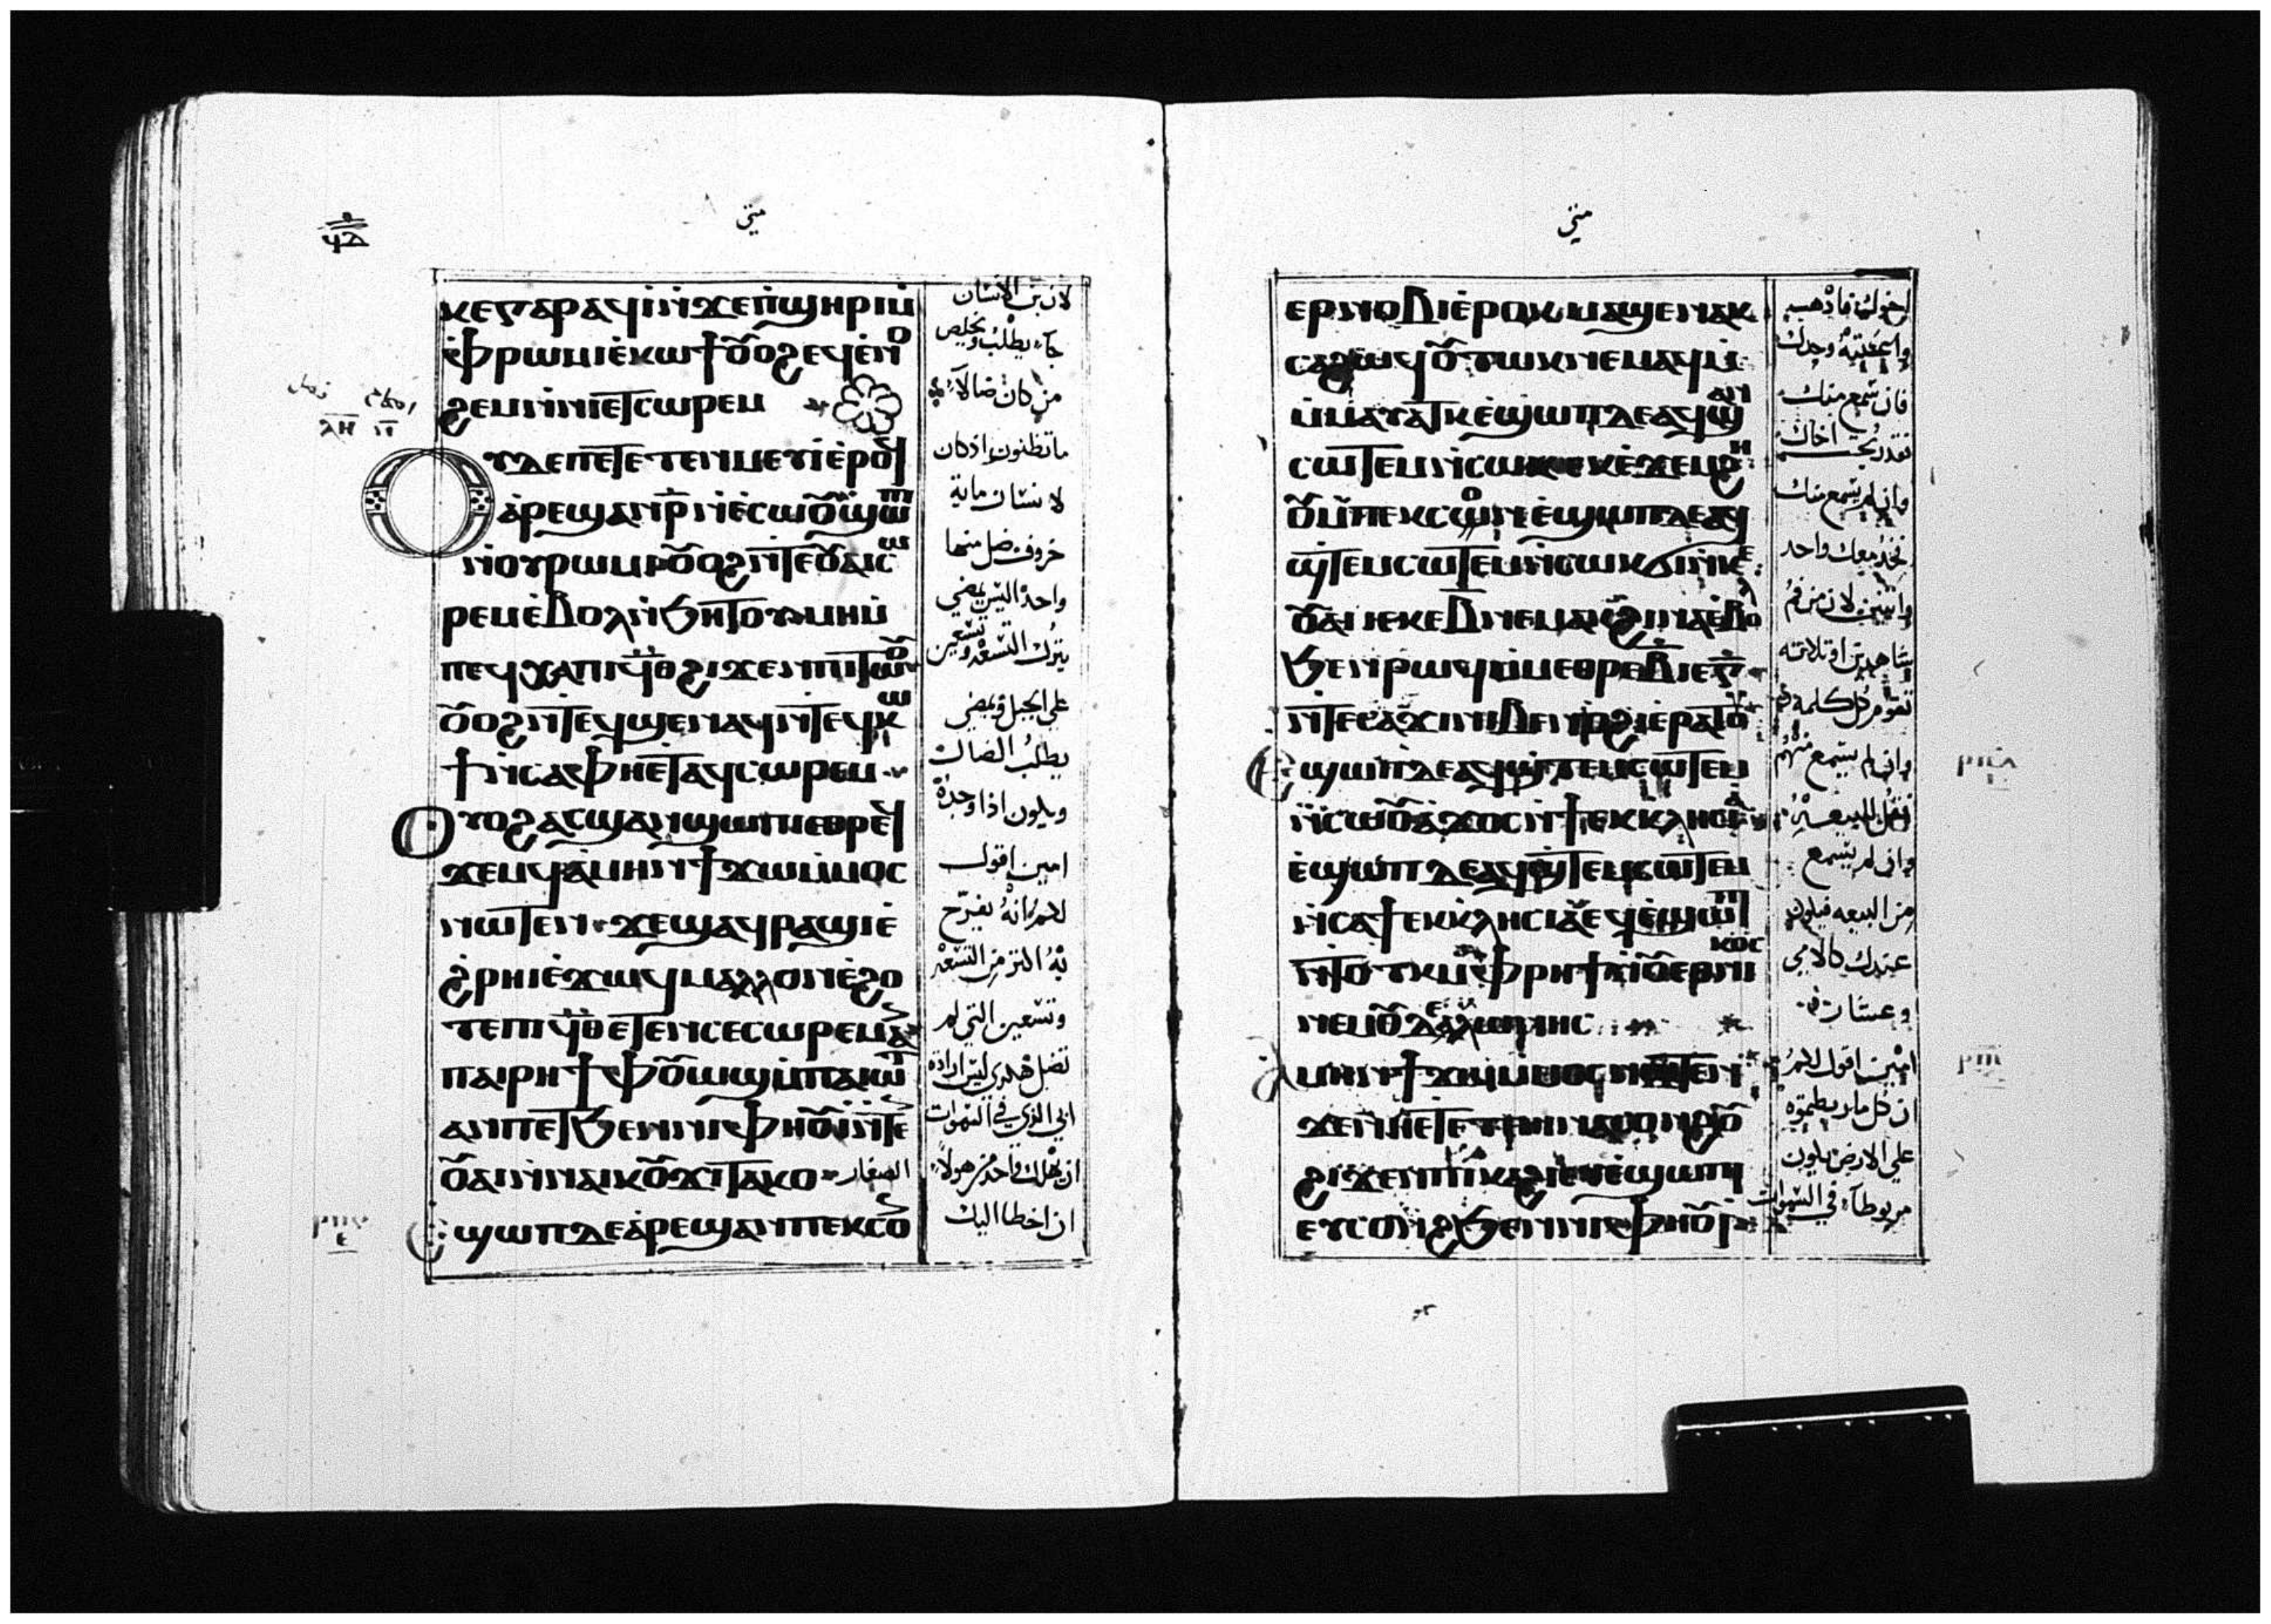 متى
ϥⲇ
ⲕⲉⲅⲁⲣ ⲁϥⲓ̀ⲛ̀ϫⲉⲡ̀ϣⲏⲣⲓⲙ̀
ⲫ̀ⲣⲱⲙⲓⲉ̀ⲕⲱϯⲟⲩⲟϩⲉϥⲉ̀ⲛⲟ
ϩⲉⲙⲛ̀ⲛⲏⲉⲧⲥⲱⲣⲉⲙ
ⲟⲩⲇⲉⲡⲉⲧⲉⲧⲉⲛⲙⲉⲩⲓ̀ⲉ̀ⲣⲟϥ
ⲁ̀ⲣⲉϣⲁⲛⲣ̄ⲛ̀ⲉ̀ⲥⲱⲟⲩϣⲱⲡⲓ
ⲛ̀ⲟⲩⲣⲱⲙⲓⲟⲩⲟϩⲛ̀ⲧⲉⲟⲩⲁⲓⲥⲱ
ⲣⲉⲙⲉ̀ⲃⲟⲗⲛ̀ϧⲏⲧⲟⲩⲙⲏⲙ̀
ⲡⲉϥⲭⲁⲡⲓϥ̄ⲑ̄ϩⲓϫⲉⲛⲡⲓⲧⲱⲟⲩ
ⲟⲩⲟϩⲛ̀ⲧⲉϥϣⲉⲛⲁϥⲛ̀ⲧⲉϥⲕⲱ
ϯⲛ̀ⲥⲁⲫⲏⲉ̀ⲧⲁϥⲥⲱⲣⲉⲙ
ⲟⲩⲟϩⲁⲥϣⲁⲛϣⲱⲡⲓⲉⲑⲣⲉϥ
ϫⲉⲙϥⲁ̀ⲙⲏⲛϯϫⲱⲙ̀ⲙⲟⲥ
ⲛⲱⲧⲉⲛ ϫⲉϣⲁϥⲣⲁϣⲓⲉ̀
ϩ̀ⲣⲏⲓⲉ̀ϫⲱϥⲙⲁⲗⲗⲟⲛⲉ̀ϩⲟ
ⲧⲉⲡⲓϥ̄ⲑ̄ⲉⲧⲉⲛⲥⲉⲥⲱⲣⲉⲙⲁⲛ
ⲡⲁⲓⲣⲏϯⲫ̀ⲟⲩⲱϣⲙ̀ⲡⲁⲓⲱⲧ
ⲁⲛⲡⲉⲧϧⲉⲛⲛⲓⲫⲏⲟⲩⲓ̀ⲛ̀ⲧⲉ
ⲟⲩⲁⲓⲛ̀ⲛⲁⲓⲕⲟⲩϫⲓⲧⲁⲕⲟ الصغار
ⲉϣⲱⲡⲇⲉⲁ̀ⲣⲉϣⲁⲛⲡⲉⲕⲥⲟⲛ
لان بن الانسان
جاء يطلب ويخلص
من كان ضالاً
ماتظنون اذكان
لانسان ماية
خروف ضل منها
واحد اليس يمضي
يترك التسعه وتسعين
على الجبل ويمضي
يطلب الضال
ويلون اذا وجده
امين اقول
لكم انه يفرح
به اكثر من التسعه
وتسعين التي لم
تضل هكذي ليس ارادة
ابي الذي في السموات
ان يهلك واحد من هولاء
ان اخطا اليك
متى
ⲉⲣⲛⲟⲃⲓⲉ̀ⲣⲟⲕⲙⲁϣⲉⲛⲁⲕ
ⲥⲁϩⲱϥⲟⲩⲧⲱⲕⲛⲉⲙⲁϥⲙ̀
ⲙ̀ⲙⲁⲩⲁⲧⲕⲉ̀ϣⲱⲡⲇⲉⲁϥϣⲁⲛ
ⲥⲱⲧⲉⲙⲛ̀ⲥⲱⲕⲉⲕⲉ̀ϫⲉⲙϩⲏ
ⲟⲩⲙ̀ⲡⲉⲕⲥⲟⲛⲉ̀ϣⲱⲡⲇⲉⲁϥ
ϣ̀ⲧⲉⲙⲥⲱⲧⲉⲙⲛ̀ⲥⲱⲕϭⲓⲛ̀ⲕⲉ
ⲟⲩⲁⲓⲓⲉⲕⲉⲃ̄ⲛⲉⲙⲁⲕϩⲓⲛⲁⲉ̀ⲃⲟⲗ
ϧⲉⲛⲣⲱϥⲙ̀ⲙⲉⲑⲣⲉⲃ̄ⲓⲉⲅ̄
ⲛ̀ⲧⲉⲥⲁϫⲓⲛⲓⲃⲉⲛⲟ̀ϩⲓⲉ̀ⲣⲁⲧⲟⲩ
ⲉϣⲱⲡⲇⲉⲁϥϣ̀ⲧⲉⲙⲥⲱⲧⲉⲙ
ⲛ̀ⲥⲱⲟⲩⲁ̀ϫⲟⲥⲛ̀ϯⲉⲕⲕⲗⲏⲥⲓⲁ
ⲉ̀ϣⲱⲡⲇⲉⲁϥϣ̀ⲧⲉⲙⲥⲱⲧⲉⲙ
ⲛ̀ⲥⲁϯⲉⲕⲕⲗⲏⲥⲓⲁⲉϥⲉ̀ϣⲱⲡⲓ
ⲛ̀ⲧⲟⲧⲕⲙ̀ⲫ̀ⲣⲏϯⲛ̀ⲟⲩⲉⲑⲛⲓⲕⲟⲥ
ⲛⲉⲙⲟⲩⲧⲉⲗⲱⲛⲏⲥ
ⲁⲙⲏⲛϯϫⲱⲙ̀ⲙⲟⲥⲛⲱⲧⲉⲛ
ϫⲉⲛⲏⲉⲧⲉⲧⲉⲛⲛⲁⲥⲟⲛϩⲟⲩ
ϩⲓϫⲉⲛⲡⲓⲕⲁϩⲓⲉⲩⲉ̀ϣⲱⲡⲓ
ⲉⲩⲥⲟⲛϩϧⲉⲛⲛⲓⲫⲏⲟⲩⲓ̀
اخوك فاذهب
واسمعيته وحدك
فان سمع منك
فقد ربحت اخاك
وان لم يسمع منك
فخذ معك واحد
واثنين لان من فم
شاهدين او ثلاثه
تقوم كل كلمه
وان لم يسمع منهم
فقل للبيعه
وان لم يسمع
من البيعه فيلون
عندك كالامي
وعشار
امين اقول لكم
ان كل ما ربطتموه
على الارض يلون
مربوطاً في السموات